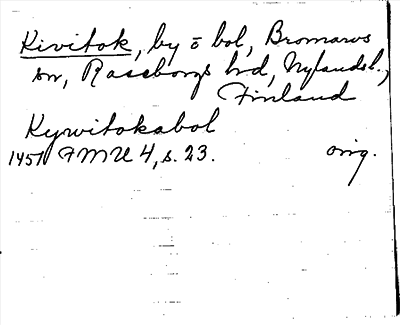 Kivitok, by o bol, Bromarvs
sn, Raseborgs hd, Nylands l.,
Finland
Kywitokabol
1451 FMU 4, s. 23. orig.